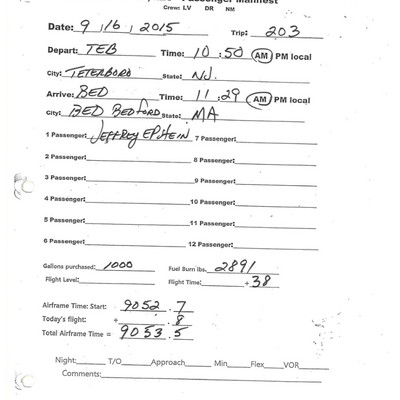 Passenger Manifest
Crew: LV DR NM
Date: 9 / 16 / 2015 Trip: 203
Depart: TEB Time: 10 : 50 AM PM local
City: TETERBORO State: NJ.
Arrive: BED Time: 11 : 29 AM PM local
City: BED BEDFORD State: MA
1 Passenger: JEFFREY EPSTEIN 7 Passenger:
2 Passenger: 8 Passenger:
3 Passenger: 9 Passenger:
4 Passenger: 10 Passenger:
5 Passenger: 11 Passenger:
6 Passenger: 12 Passenger:
Gallons purchased: 1000 Fuel Burn lbs. 2891
Flight Level: Flight Time: + 38
Airframe Time: Start: 9052 . 7
Today's flight: + . 8
Total Airframe Time = 9053 . 5
Night: T/O Approach Min Flex VOR
Comments: